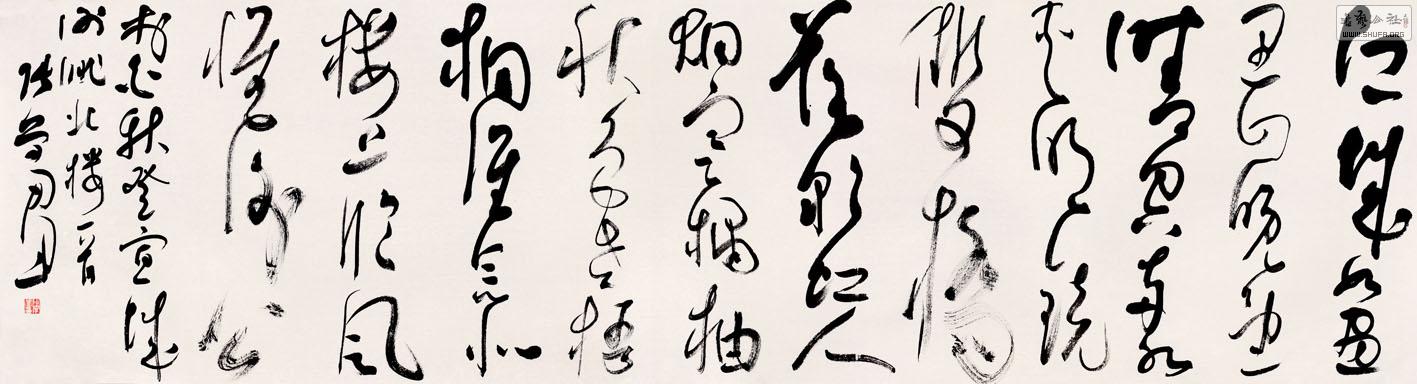 江城如画
里山晚望
晴空两水
夹明镜
双桥
落彩虹人
烟寒橘柚
秋色老梧
桐谁念北
楼上临风
怀谢公
李白秋登宣城
谢朓北楼一首
张
书艺公社
WWW.SHUFA.ORG